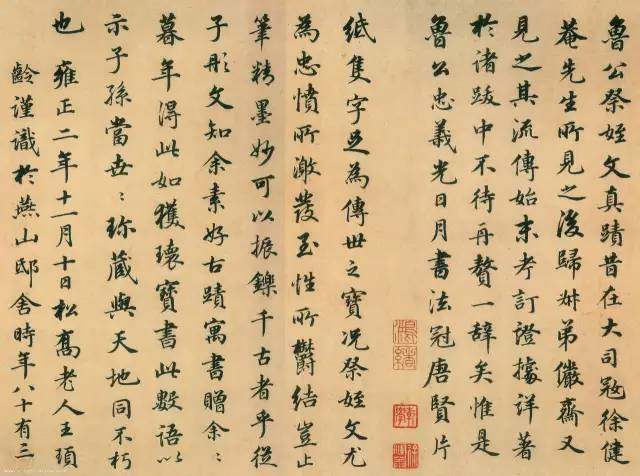 魯公祭姪文真蹟昔在大司寇徐健
菴先生所見之後歸弟儼齋又
見之其流傳始末考訂證據詳著
於諸跋中不待再贅一辭矣惟是
魯公忠義光日月書法冠唐賢片
紙隻字足為傳世之寶況祭姪文尤
為忠憤所激發至性所鬱結豈止
筆精墨妙可以振鑠千古者乎從
子彤文知余素好古蹟寓書贈余〻
暮年得此如獲瓌寶書此數語以
示子孫當世〻珎藏與天地同不朽
也 雍正二年十一月十日松喬老人王頊
齡謹識於燕山邸舍時年八十有三